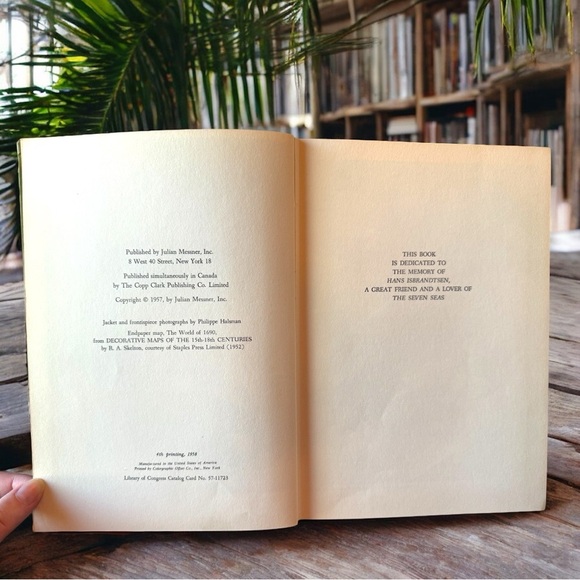 Published by Julian Messner, Inc.
8 West 40 Street, New York 18
Published simultaneously in Canada
by The Copp Clark Publishing Co. Limited
Copyright © 1957, by Julian Messner, Inc.
Jacket and frontispiece photographs by Philippe Halsman
Endpaper map, The World of 1690,
from DECORATIVE MAPS OF THE 15th-18th CENTURIES
by R. A. Skelton, courtesy of Staples Press Limited (1952)
4th printing, 1958
Manufactured in the United States of America
Printed by Cartographic Offset Co., Inc., New York
Library of Congress Catalog Card No. 57-11723
THIS BOOK
IS DEDICATED TO
THE MEMORY OF
HANS ISBRANDTSEN,
A GREAT FRIEND AND A LOVER OF
THE SEVEN SEAS